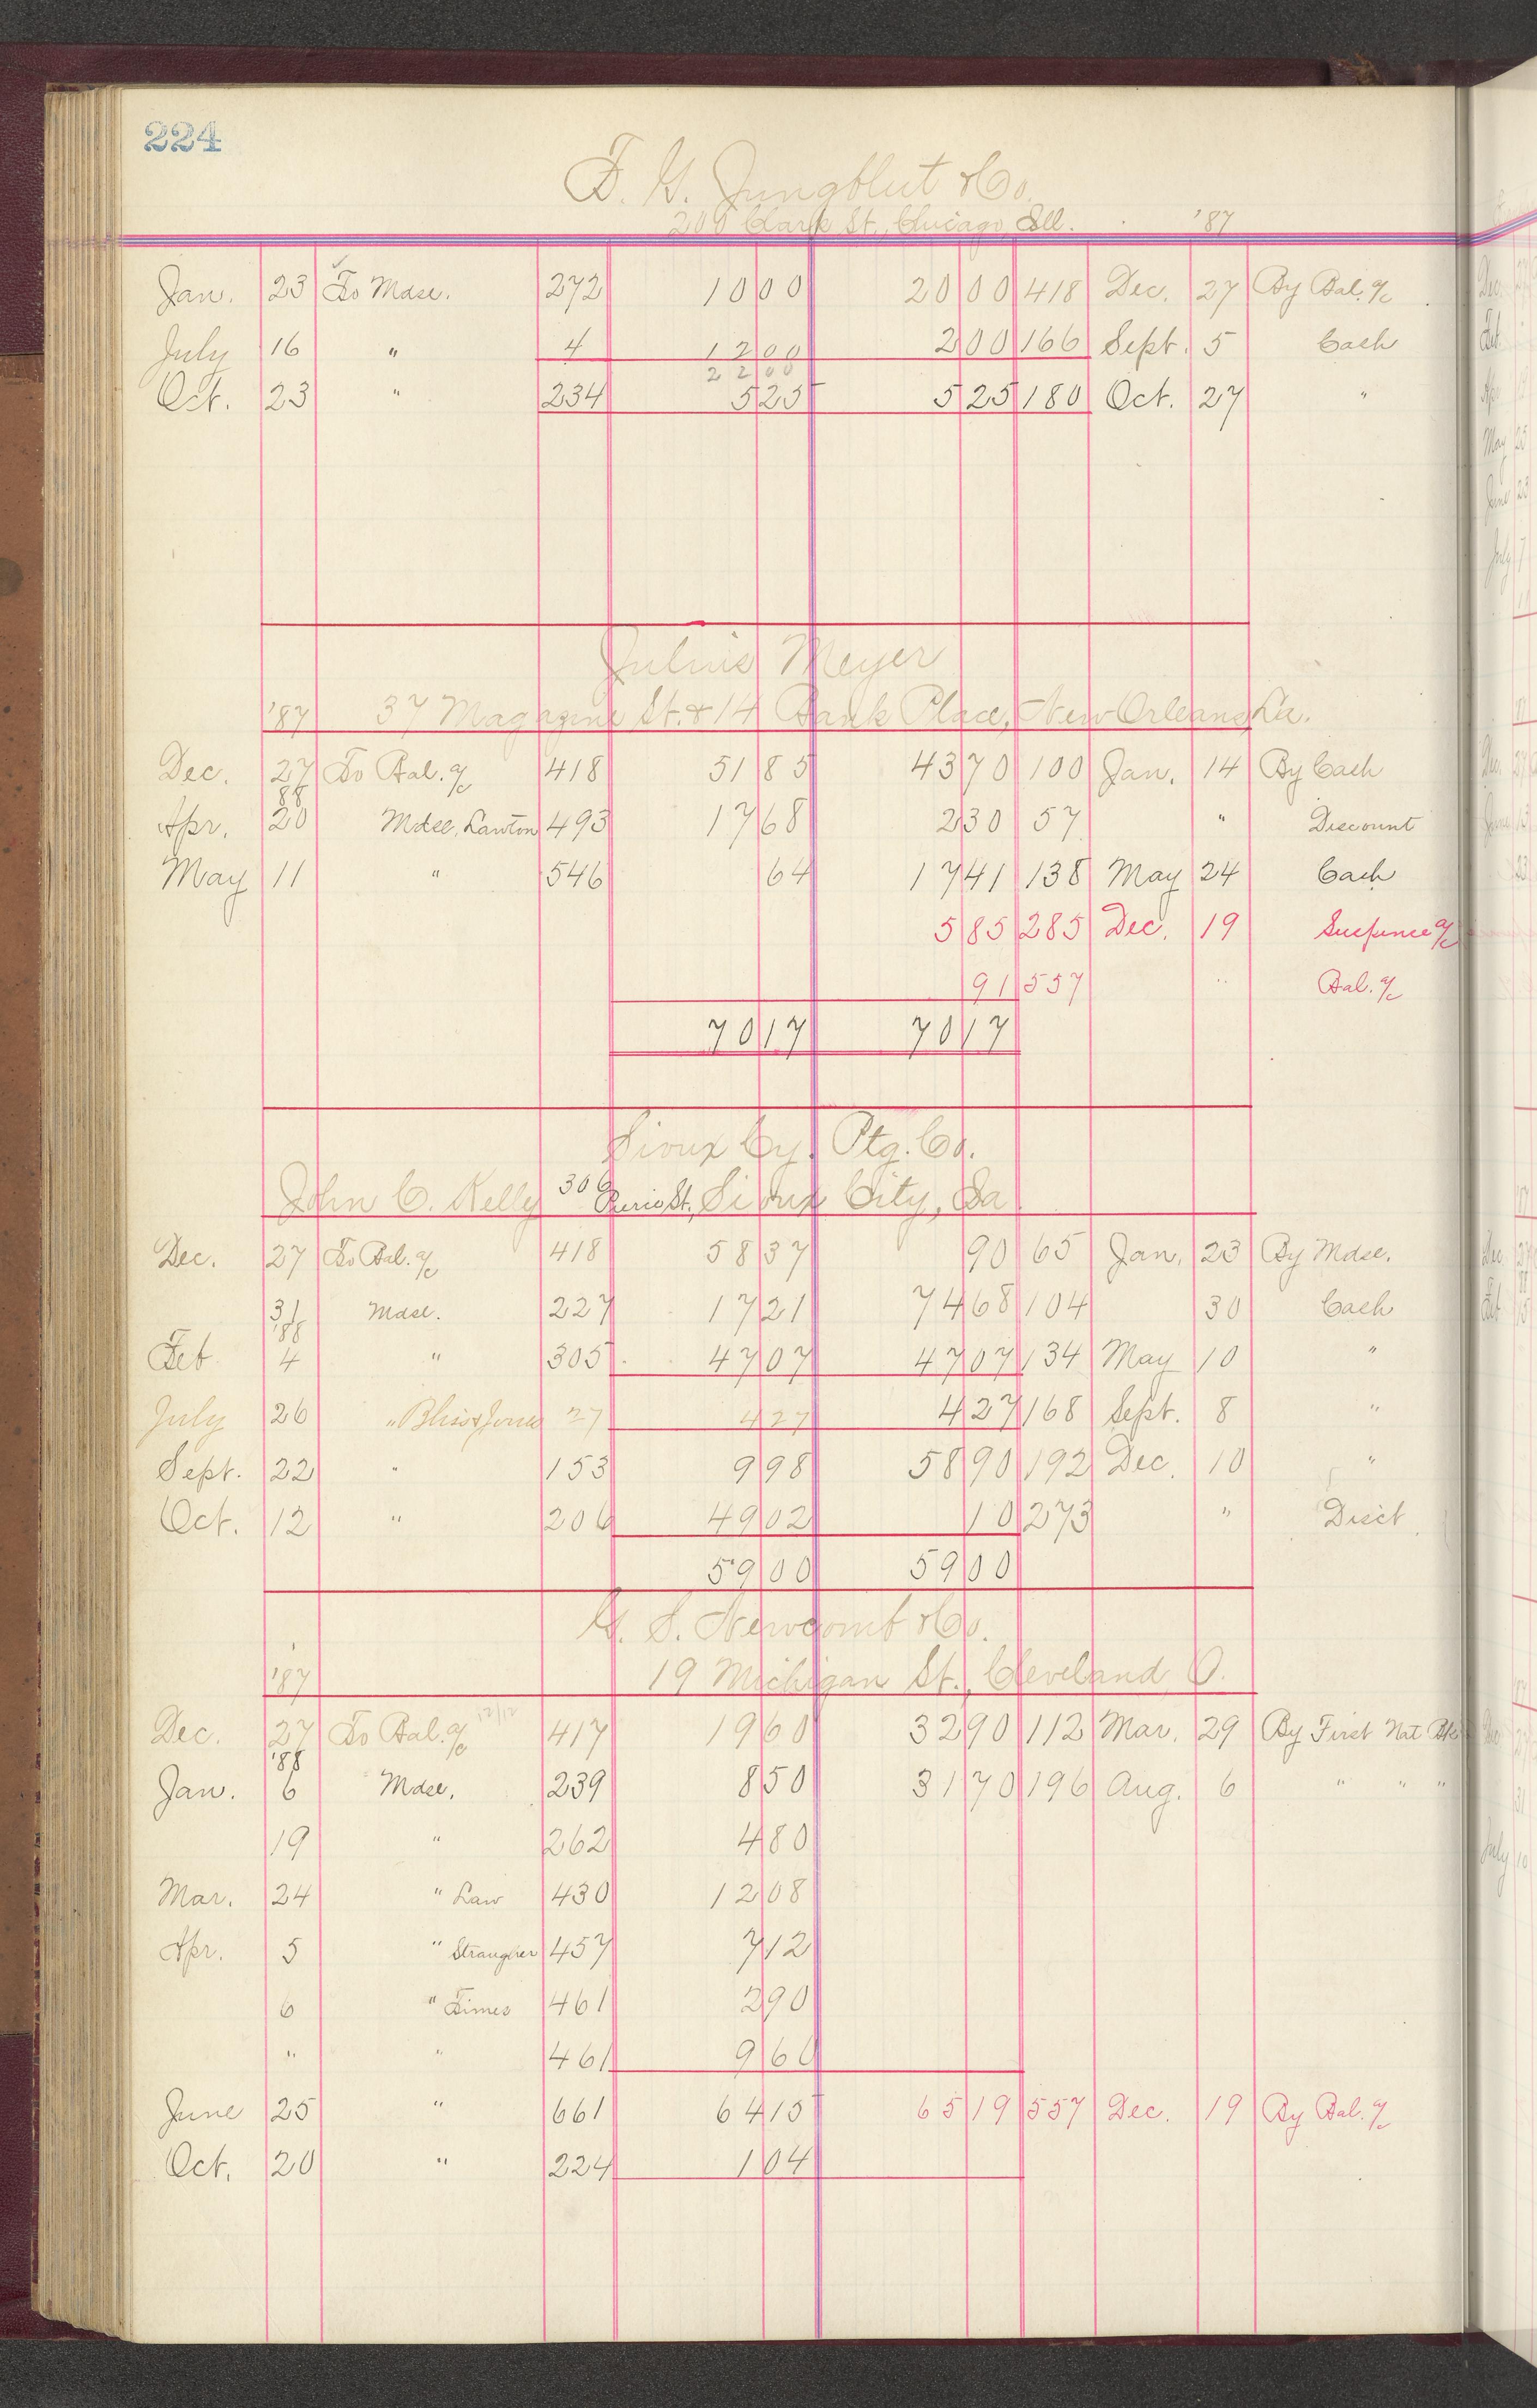 224
F. G. Jungblut & Co.
200 Clark St., Chicago, Ill. '87
Jan. 23 To Mdse. 272 10 00 20 00 418 Dec. 27 By Bal. a/c
July 16 " 4 12 00 2 00 166 Sept. 5 Cash
22 00
Oct. 23 " 234 5 25 5 25 180 Oct. 27 "
Julius Meyer
'87 37 Magazine St. & 14 Bank Place, New Orleans, La.
Dec. 27 To Bal. a/c 418 51 85 43 70 100 Jan. 14 By Cash
'88
Apr. 20 Mdse, Lawton 493 17 68 2 30 57 " Discount
May 11 " 546 64 17 41 138 May 24 Cash
5 85 285 Dec. 19 Suspense a/c
91 557 " Bal. a/c
70 17 70 17
Sioux Cy. Ptg. Co.
John C. Kelly 306 St., Sioux City, Ia
Dec. 27 To Bal. a/c 418 58 37 90 65 Jan. 23 By Mdse.
31 Mdse. 227 17 21 74 68 104 30 Cash
'88
Feb 4 " 305 47 07 47 07 134 May 10 "
July 26 " Bliss & Jones 27 4 27 4 27 168 Sept. 8 "
Sept. 22 " 153 9 98 58 90 192 Dec. 10 "
Oct. 12 " 206 49 02 10 273 " Disct
59 00 59 00
G. S. Newcomb & Co.
'87 19 Michigan St., Cleveland, O.
Dec. 27 To Bal. a/c 12/12 417 19 60 32 90 112 Mar. 29 By First Nat Bk
'88
Jan. 6 Mdse. 239 8 50 31 70 196 Aug. 6 " " "
19 " 262 4 80
Mar. 24 " Law 430 12 08
Apr. 5 " 457 7 12
6 " Times 461 2 90
" " 461 9 60
June 25 " 661 64 15 65 19 557 Dec. 19 By Bal. a/c
Oct. 20 " 224 1 04